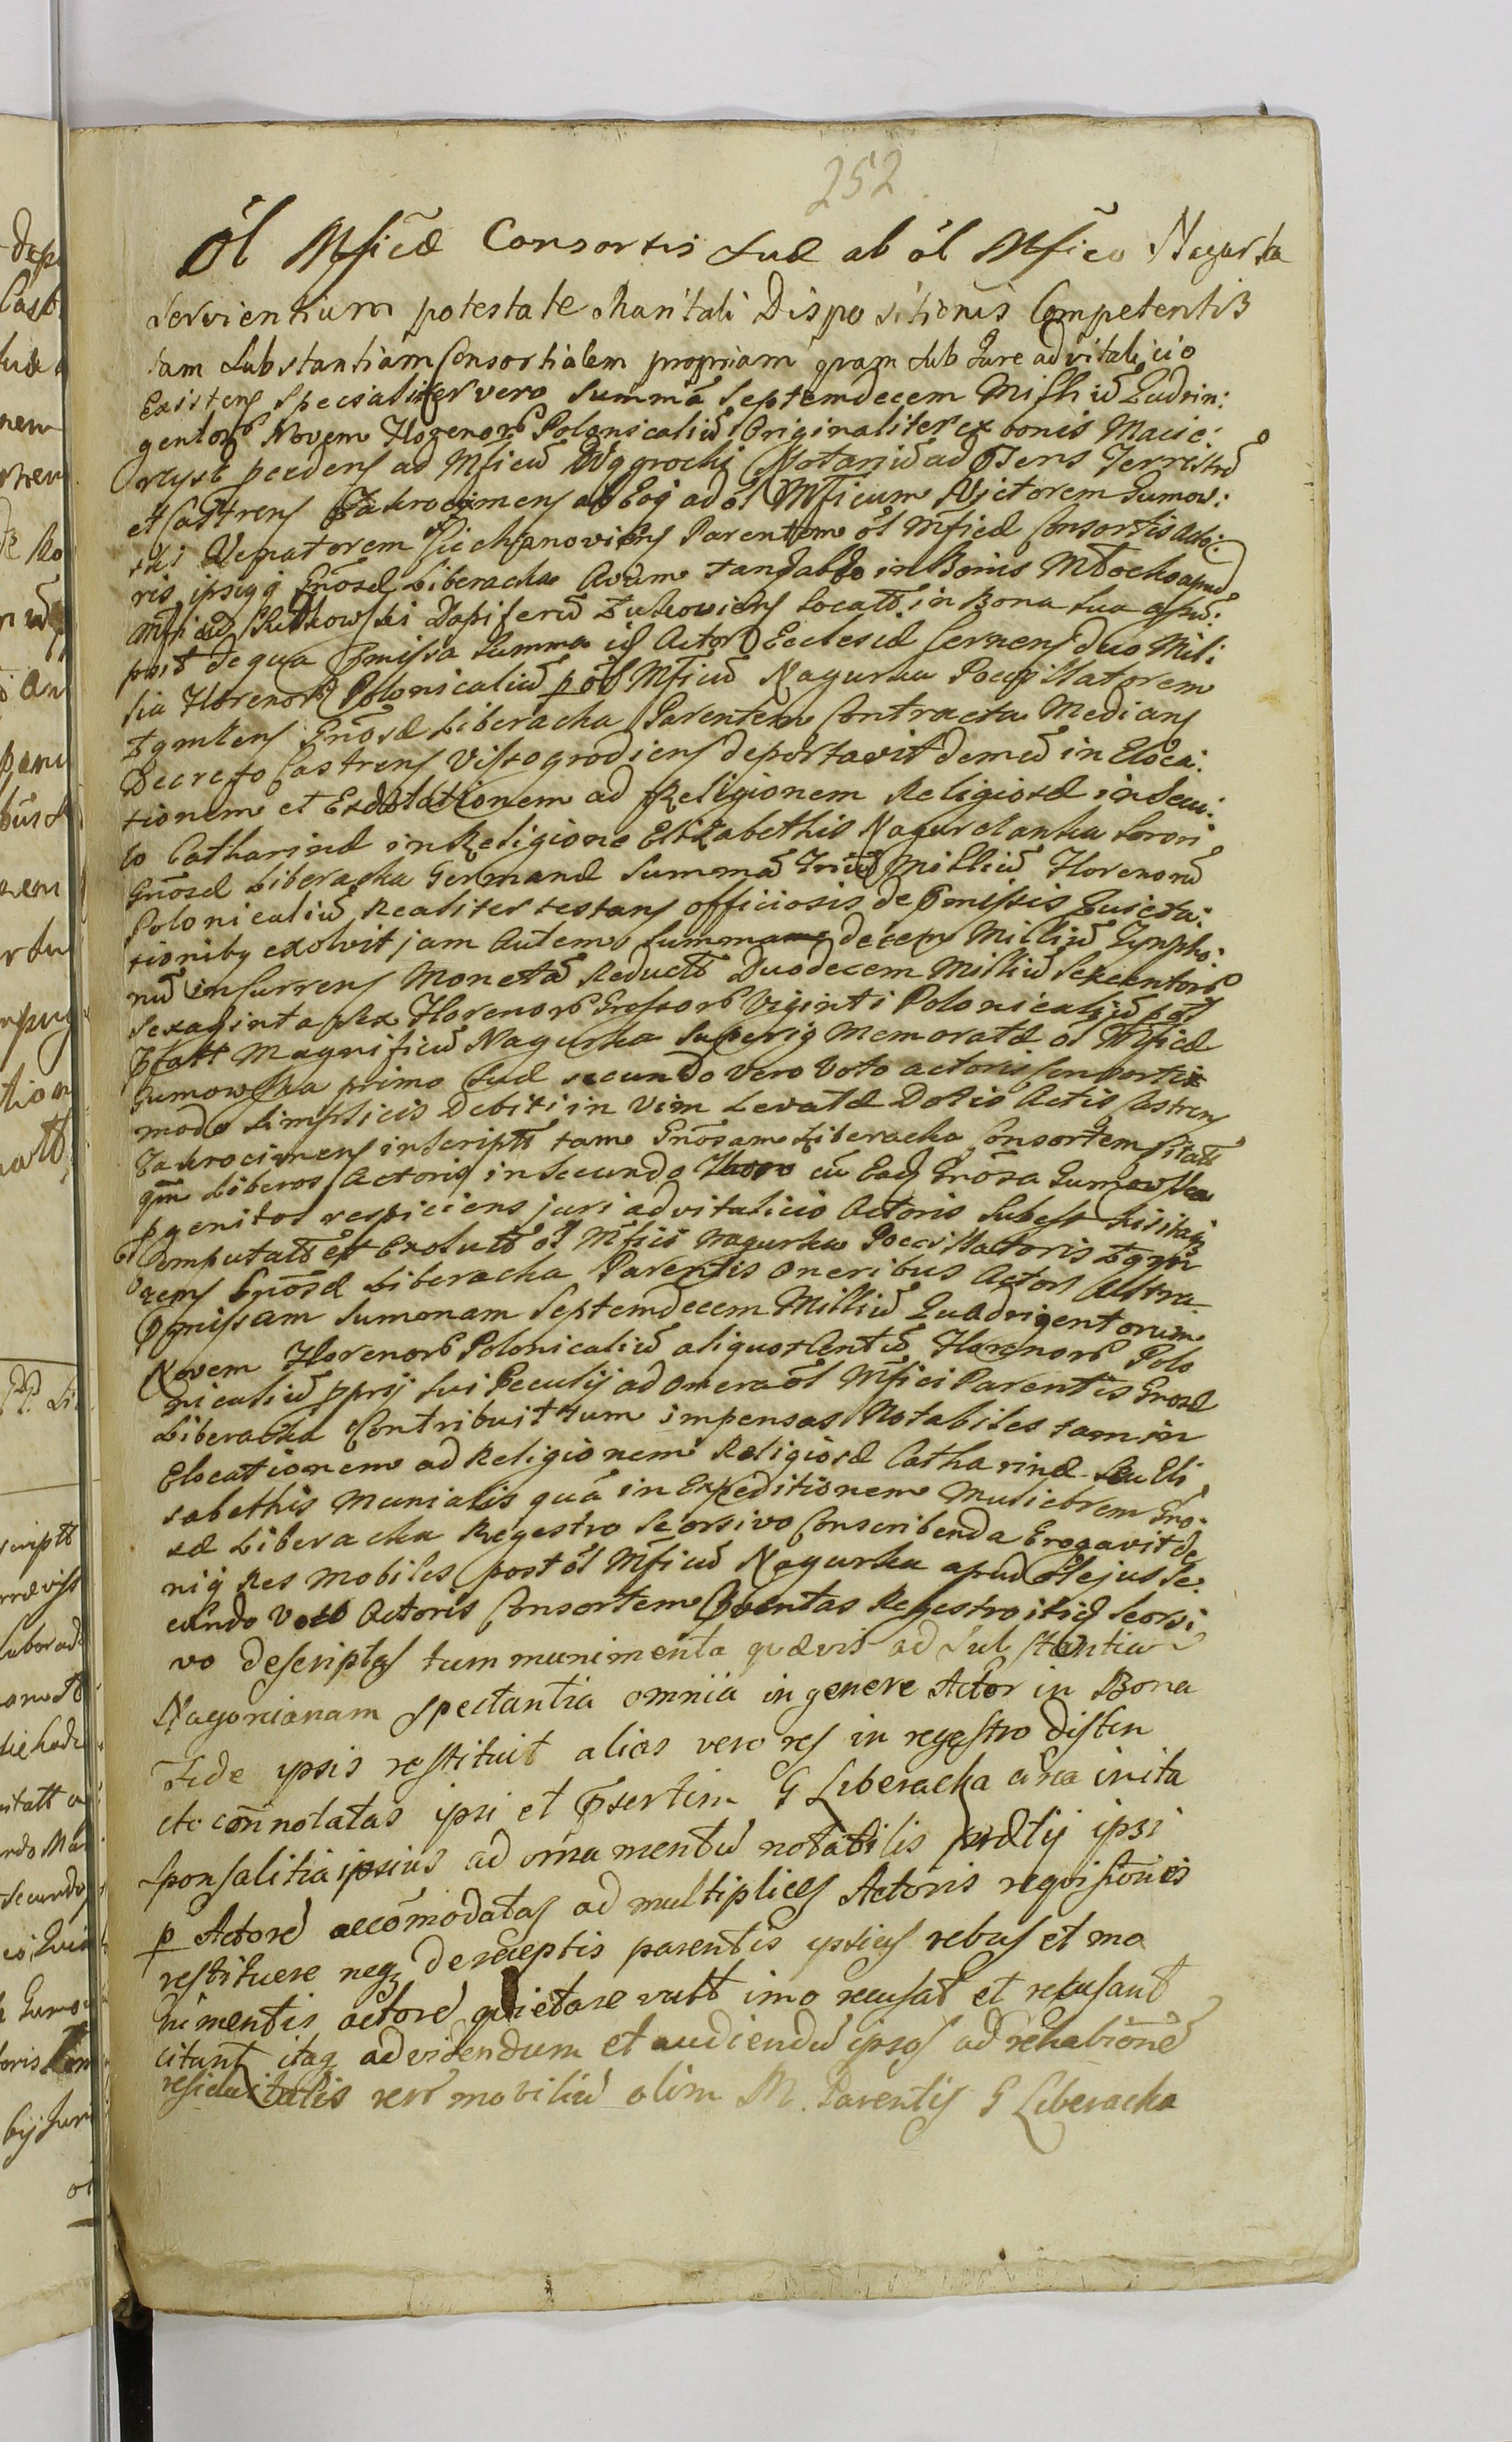 252
Ól Mficæ Consortis suæ ab ól Mfico Nagurka
servientium potestate Maritali Dispositionis Competentis
tam Substantiam Consortialem propriam quam sub Jure advitalicio
Existens Specialiter vero Summã Septemdecem Milliũ Quadrin:
gentorũ Novem Florenorũ Polonicaliũ Originaliter ex bonis Macie:
præcedens ad Mficũ Notariũ Terrestrẽ
et Castrens Zakrocimens ab Eoq ad ól Mficum Victorem Gumow:
ski Venatorem Ciechanoviens Parentem ól Mficæ Consortis Acto:
ris ipsiqq Gnosæ Liberacka Avum tandab in Bonis Mlocko apud
Mficũ Rutkowski Dapiferũ locatt in Bona sua apud:
de qua Pmissa Summa id Actor Ecclesiæ Cernens duo Mili:
lia Florenorũ Polonicaliũ p ól Mficũ Nagurka Pocillatorem
Gnosæ Liberacka Parentem Contracta Medians
Decreto Castrens Vissogrodiens deportavit demũ in Eloca:
tionem et Exdotationem ad Religionem Religiosæ in Secu:
lo Catharinæ in Religione Elizabethis Nagurclanka Sorori
Gnosæ Liberacka Germanæ Summã Triũ Milliũ Florenorũ
Polonicaliũ Realiter testans officiosis de Pmissis Quieta:
tionibq exolvit jam Autem Summam decem Milliũ Tympho:
nũ in Currens Monetã Reductt Duodecem Milliũ Sexcentorũ
Sexaginta sex Florenorũ Grossorũ Viginti Polonicaliũ p ól
Pfatt Magnificũ Nagurka Superiq Memoratæ ól Mficæ
Gumowska primo suæ secundo vero Voto actoris Consortis
modo Simplicis Debiti in Vim Levatæ Dotis Actis Castrens
Zakrocimens inscriptt tam Gnosam Liberacka Consortem Citatt
qm Liberos Actoris in Secundo Thoro cũ Eadq Gnosa Gumowska
pgenitos respiciens juri advitalicio Actoris Subest
Computatt et Exolutt ól Mfici Nagurka Pocillatoris
zens Gnosæ Liberacka Parentis oneribus Actor Ultra
Pmissam Summam Septemdecem Milliũ Quadrigentorum
Novem Florenorũ Polonicaliũ aliquot Centũ Florenorũ Polo
nicaliũ pprij sui Peculij ad Onera ól Mfici Parentis Gnosæ
Liberacka Contribuit tum impensas Notabiles tam in
Elocationem ad Religionem Religiosæ Catharinæ seu Eli
sabethis Monialis quã in Expeditionem Muliebrem Gno:
sæ Liberacka Regestro Seorsivo Conscribenda Erogavit de
niq Res Mobiles post ól Mficũ Nagurka apud ól ejus Se:
cundo Voto Actoris Consortem Pventas Regestro itidẽ Seorsi
vo descriptas tum munimenta quævis ad Substantiam
Nagorcianam Spectantia omnia in genere Actor in Bona
Fide ipsis restituit alias vero res in regestro disten
cte coñnotatas ipsi et Psertim G Liberacka circa inita
sponsalitia ipsius ad ornamentũ notabilis prætij ipsi
p Actorẽ accõmodatas ad multiplices Actoris requisiones
restituere neqz de receptis parentis ipsius rebus et mo
nimentis actorẽ quietare vult imo recusat et recusant
citant itaqz ad videndum et audiendũ ipsos ad rehabitionẽ
residuitatis rerũ mobiliũ olim M. Parentis G Liberacka